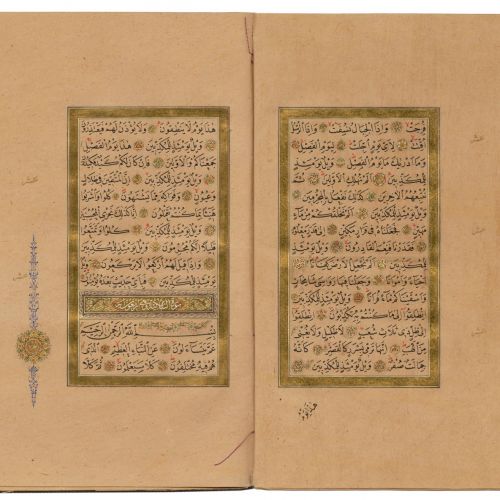 فرجت وإذا الجبال نسفت وإذا الرسل
أقتت لأي يوم أجلت ليوم الفصل
وما أدريك ما يوم الفصل ويل يومئذ
للمكذبين ألم نهلك الأولين ثم
نتبعهم الآخرين كذلك نفعل بالمجرمين
ويل يومئذ للمكذبين ألم نخلقكم من ماء
مهين فجعلناه في قرار مكين إلى قدر معلوم
فقدرنا فنعم القادرون ويل يومئذ
للمكذبين ألم نجعل الأرض كفاتا
أحياء وأمواتا وجعلنا فيها رواسي شامخات
وأسقيناكم ماء فراتا ويل يومئذ للمكذبين
انطلقوا إلى ما كنتم به تكذبون انطلقوا
إلى ظل ذي ثلاث شعب لا ظليل ولا يغني
من اللهب إنها ترمي بشرر كالقصر كأنه
جمالت صفر ويل يومئذ للمكذبين
هذا يوم
هذا يوم لا ينطقون ولا يؤذن لهم فيعتذرون
ويل يومئذ للمكذبين هذا يوم الفصل
جمعناكم والأولين فإن كان لكم كيد فكيدون
ويل يومئذ للمكذبين إن المتقين في ظلال
وعيون وفواكه مما يشتهون كلوا واشربوا
هنيئا بما كنتم تعملون إنا كذلك نجزي المحسنين
ويل يومئذ للمكذبين كلوا وتمتعوا
قليلا إنكم مجرمون ويل يومئذ للمكذبين
وإذا قيل لهم اركعوا لا يركعون ويل
يومئذ للمكذبين فبأي حديث بعده يؤمنون
بسم الله الرحمن الرحيم
عم يتساءلون عن النبإ العظيم الذي
هم فيه مختلفون كلا سيعلمون ثم كلا